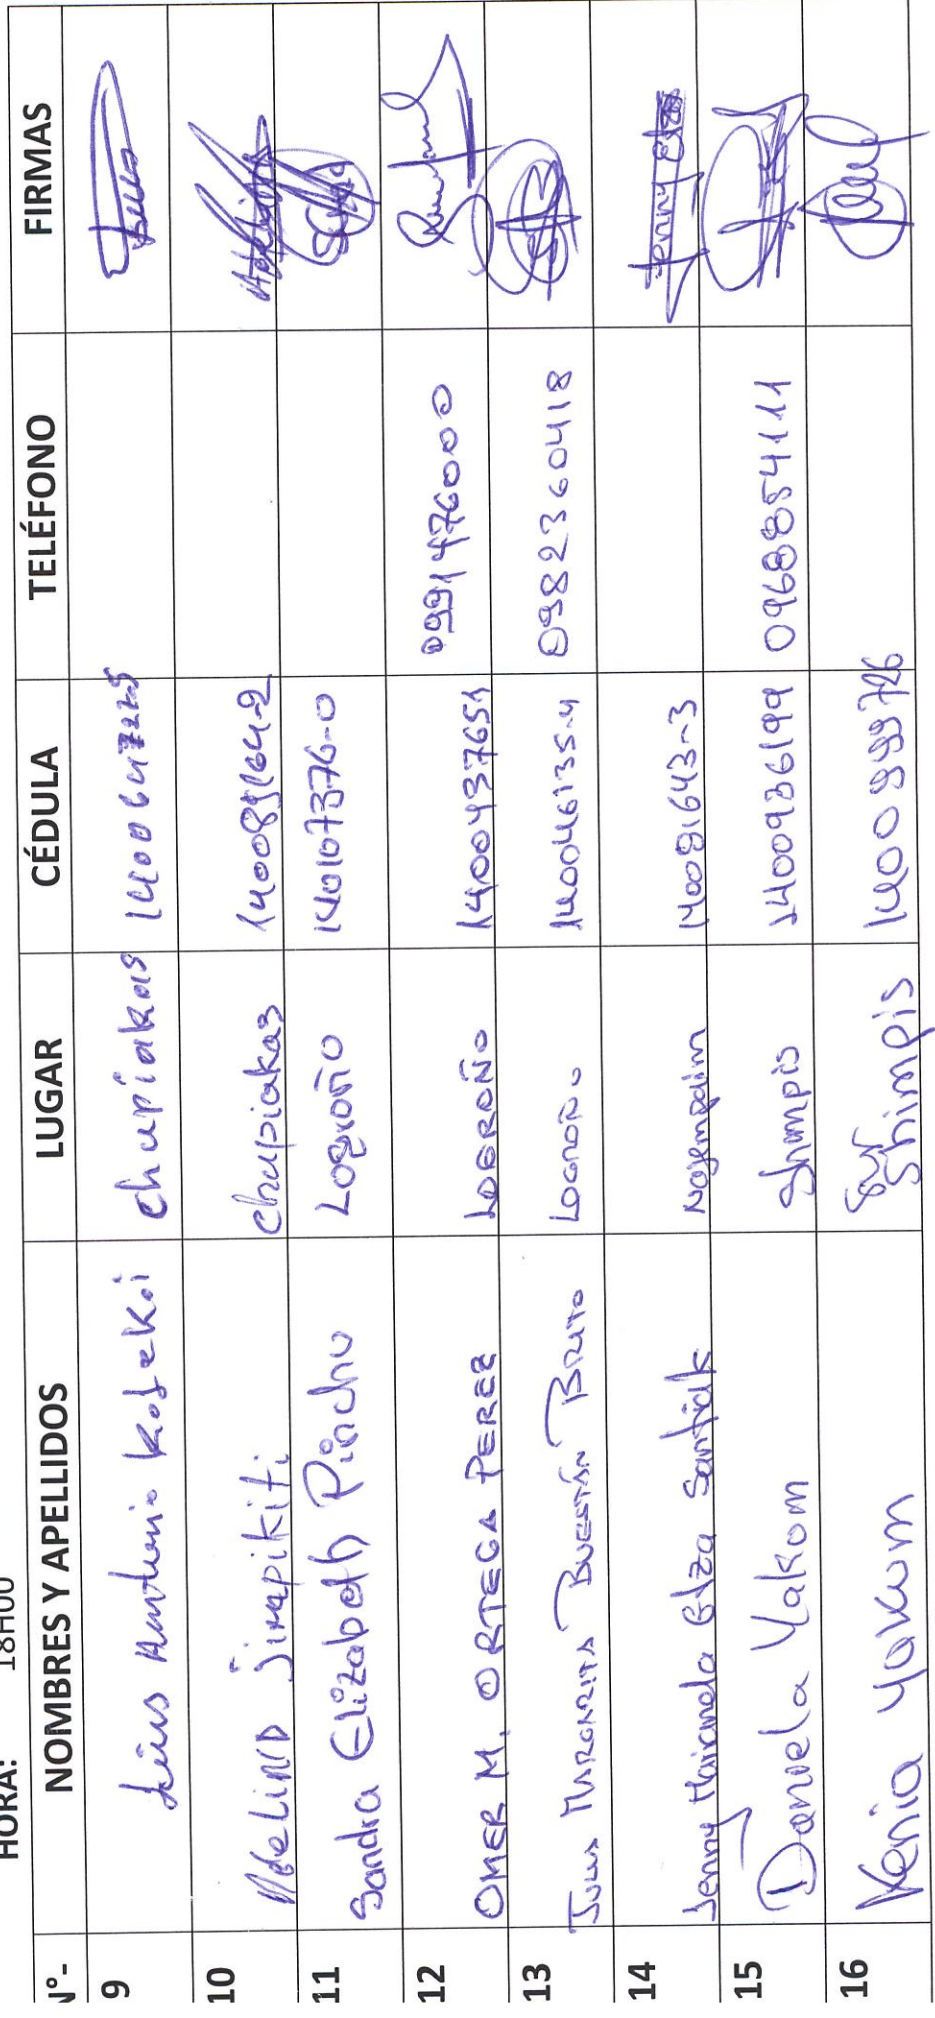 HORA: 18H00
N°- NOMBRES Y APELLIDOS LUGAR CÉDULA TELÉFONO FIRMAS
9 Antonio Chapiakas
10 Adelino Jimpikiti Chapiakas 140089164-2
11 Sandra Elizabeth Pinchu Logroño 140107376-0
12 OMER M. ORTEGA PEREZ LOGROÑO 1400437651 0991476000
13 MARGARITA BUESTÁN BRITO LOGROÑO 140046135-4 0982360418
14 Jenny Marianela Santiak 140081643-3 Jenny
15 Daniela Yakum Shimpis 1400936199 0968854111
16 Kenia Yakum Sur Shimpis 1400999726